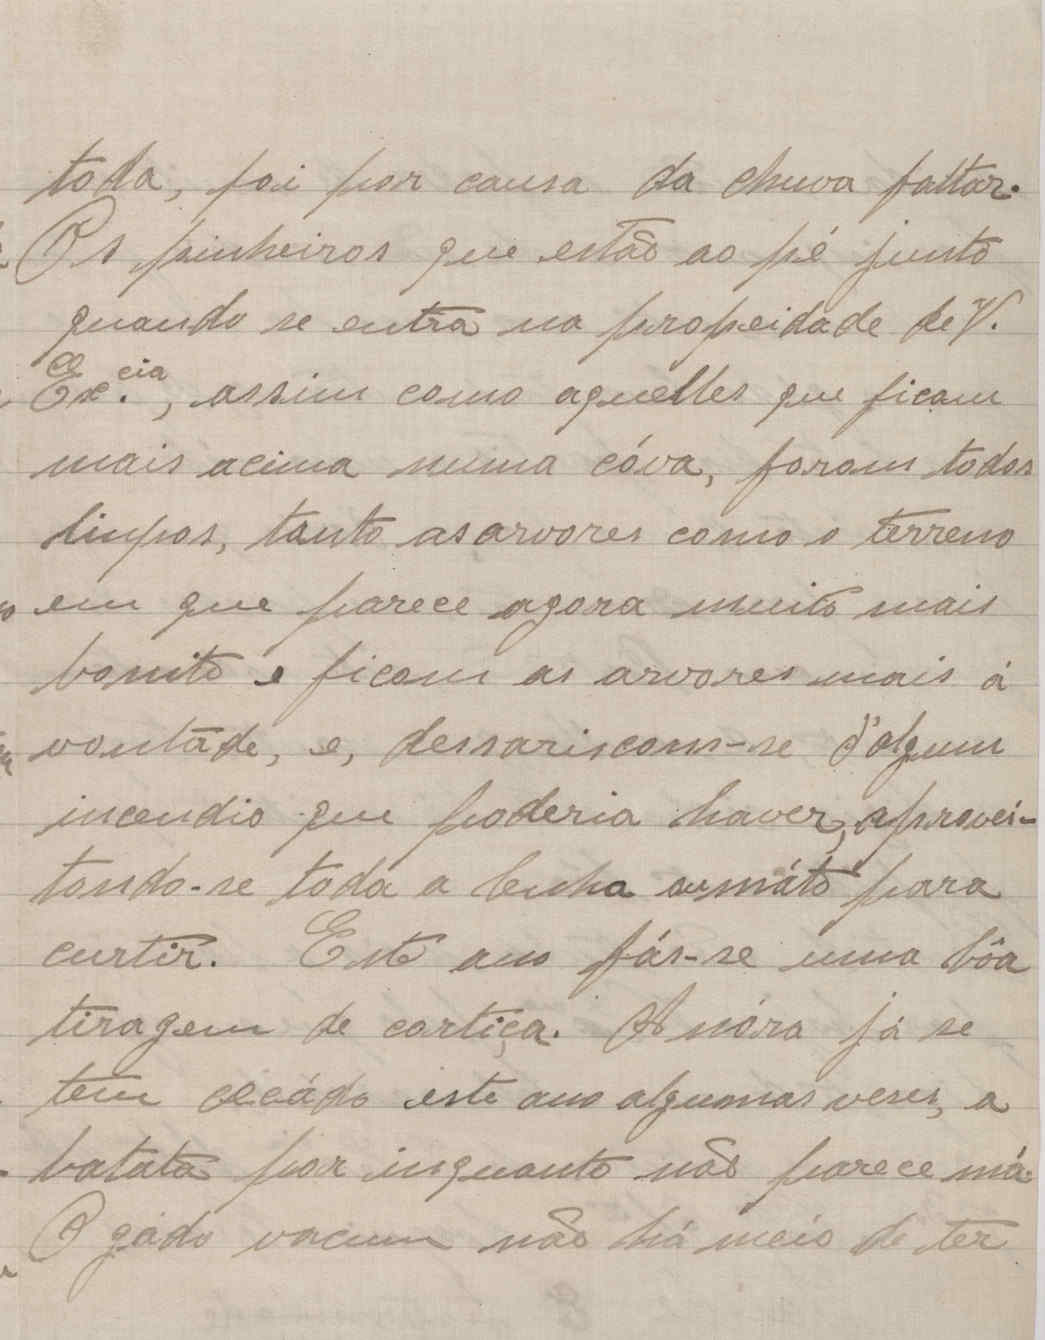 toda, foi por causa da chuva faltar.
Os pinheiros que estão ao pé junto
quando se entra na propeidade de V.
Ex.cia, assim como aquelles que ficam
mais acima numa cóva, foram todos
limpos, tanto as arvores como o terreno
em que parece agora muito mais
bonito e ficam as arvores mais á
vontáde, e, dessariscam-se d'algum
incendio que poderia haver, aprovei-
tando-se toda a lenha máto para
curtir. Este ano fás-se uma bôa
tiragem de cortiça. A nóra já se
tem cecádo este ano algumas veses, a
batata por inquanto não parece má.
O gádo vacum não há meio de ter